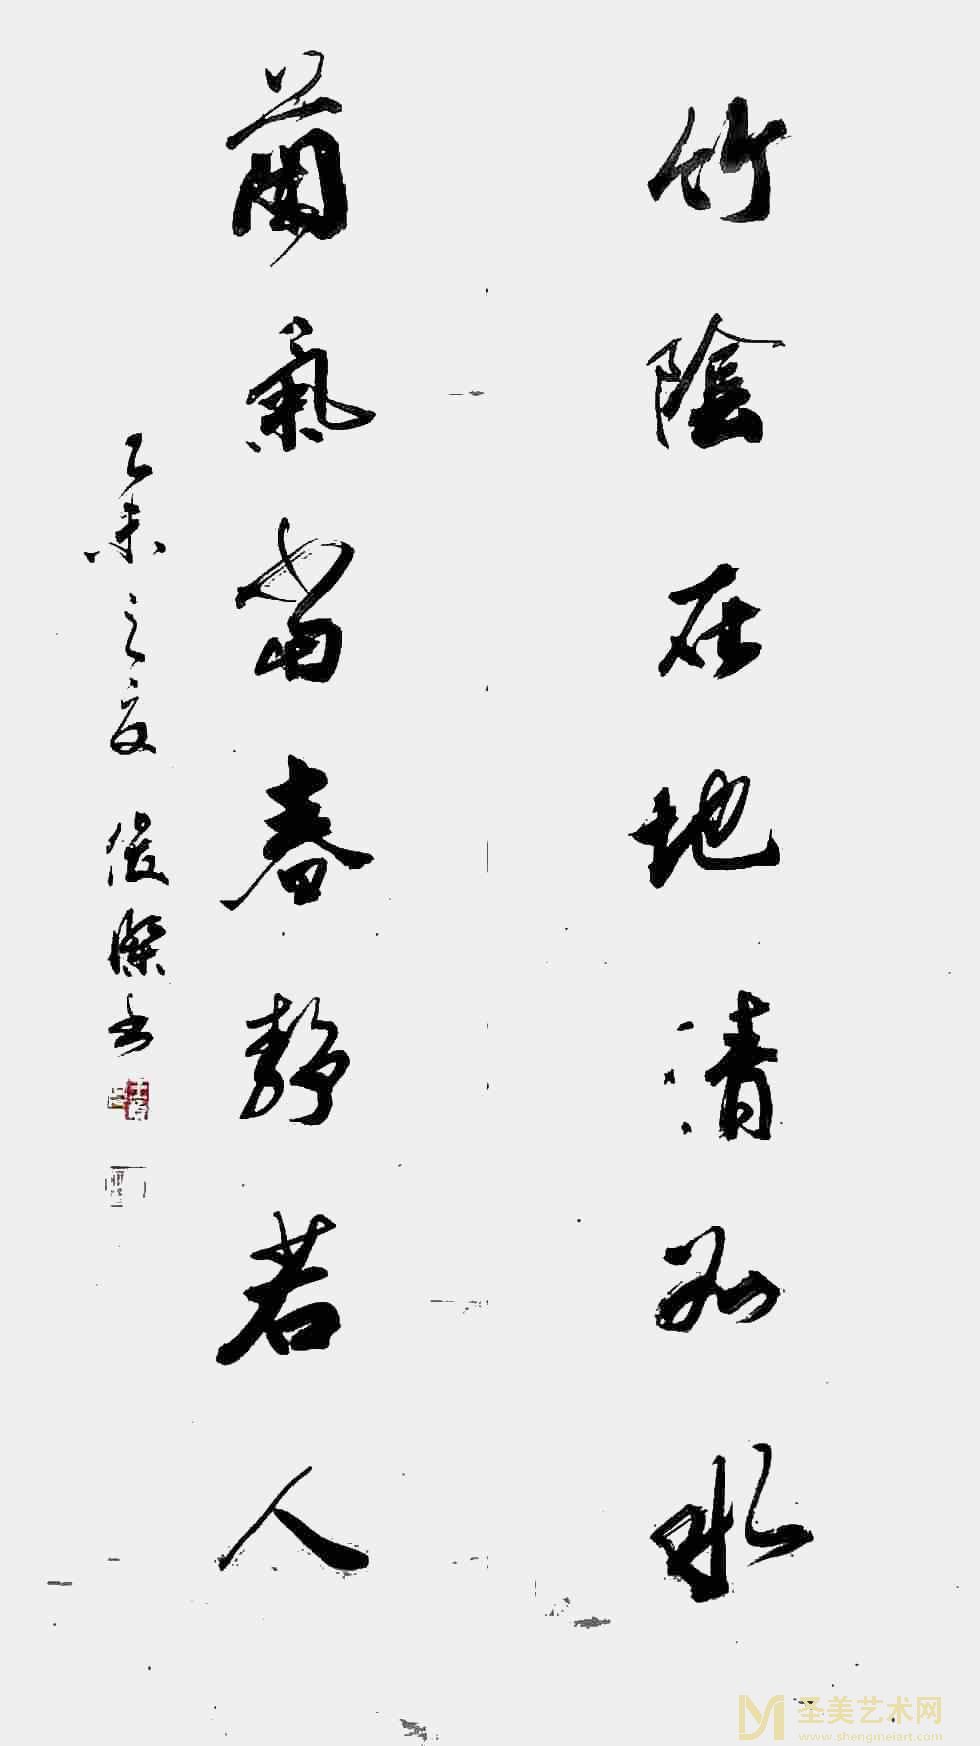 竹陰在地清於水
蘭氣當春靜若人
乙未之夏 俊傑书
圣美艺术网
www.shengmeiart.com